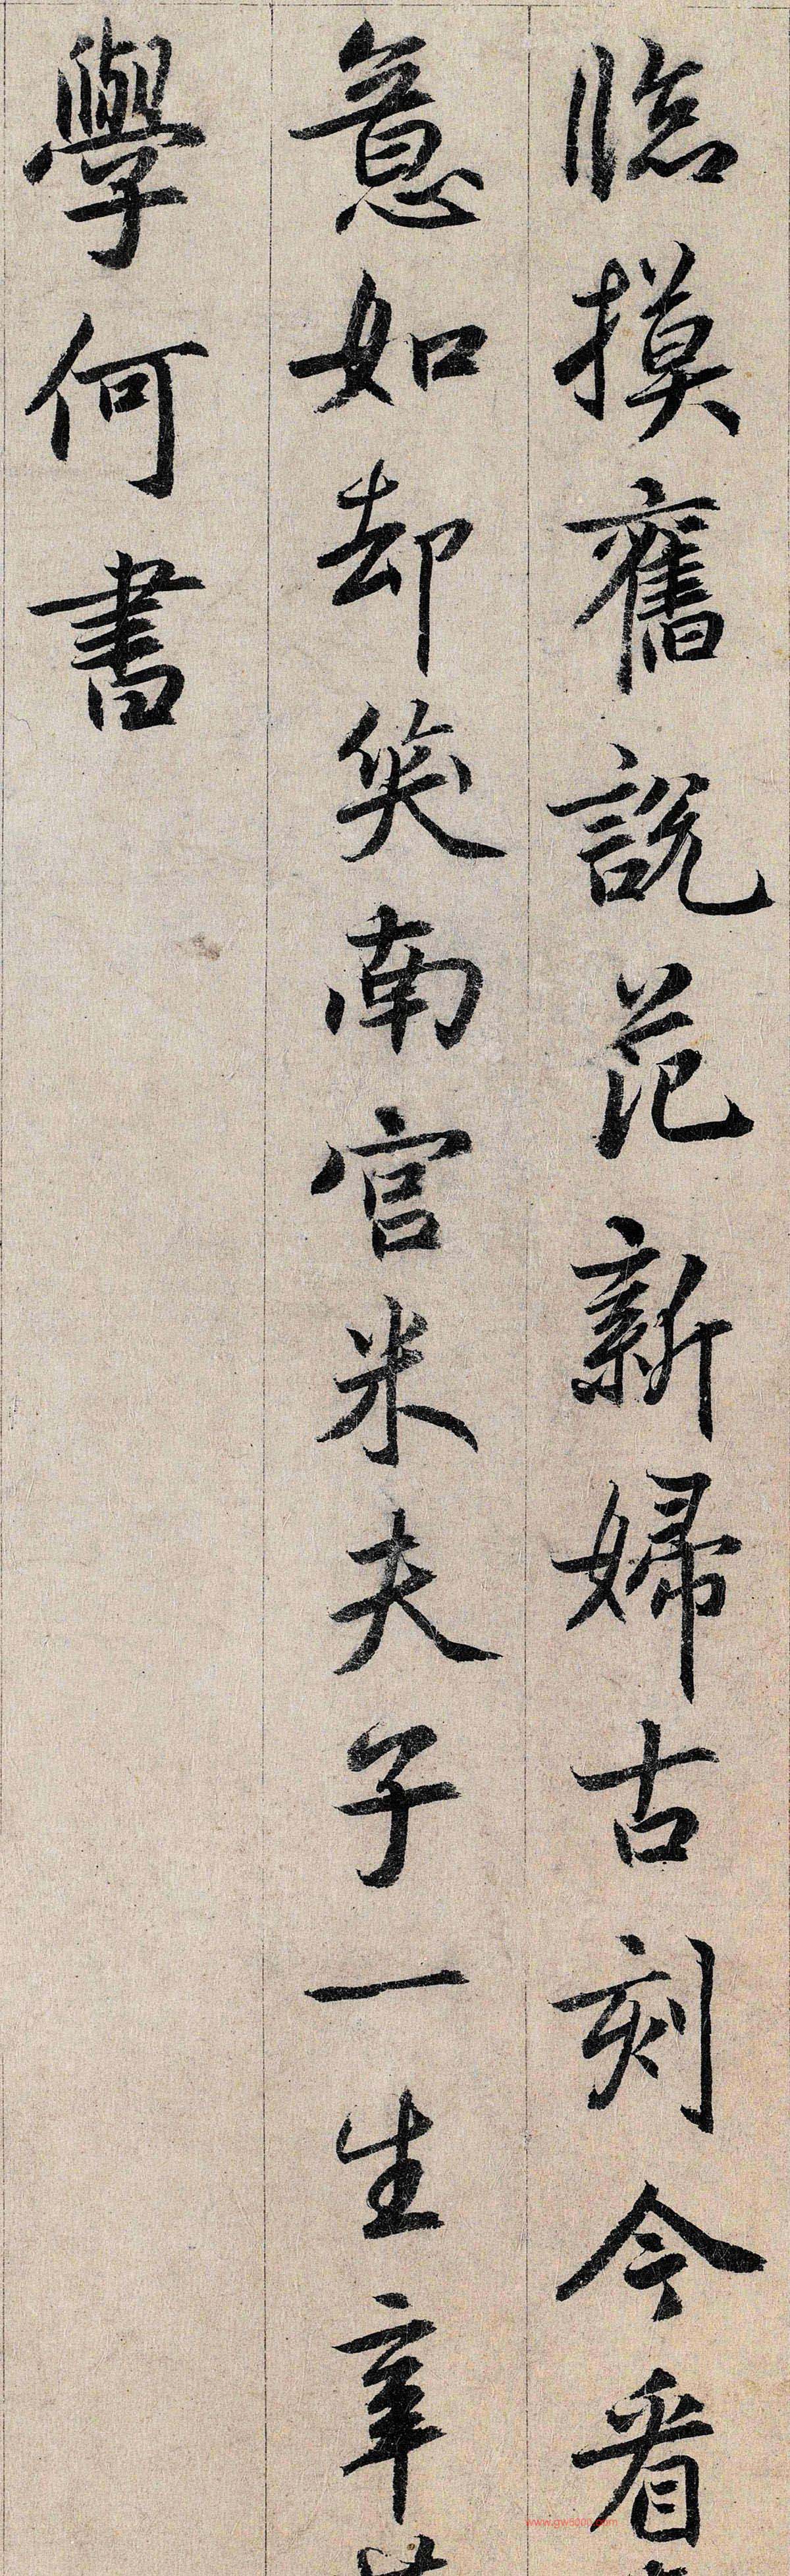 臨摸舊說范新婦古刻今看
意如却笑南宮米夫子一生辛
學何書